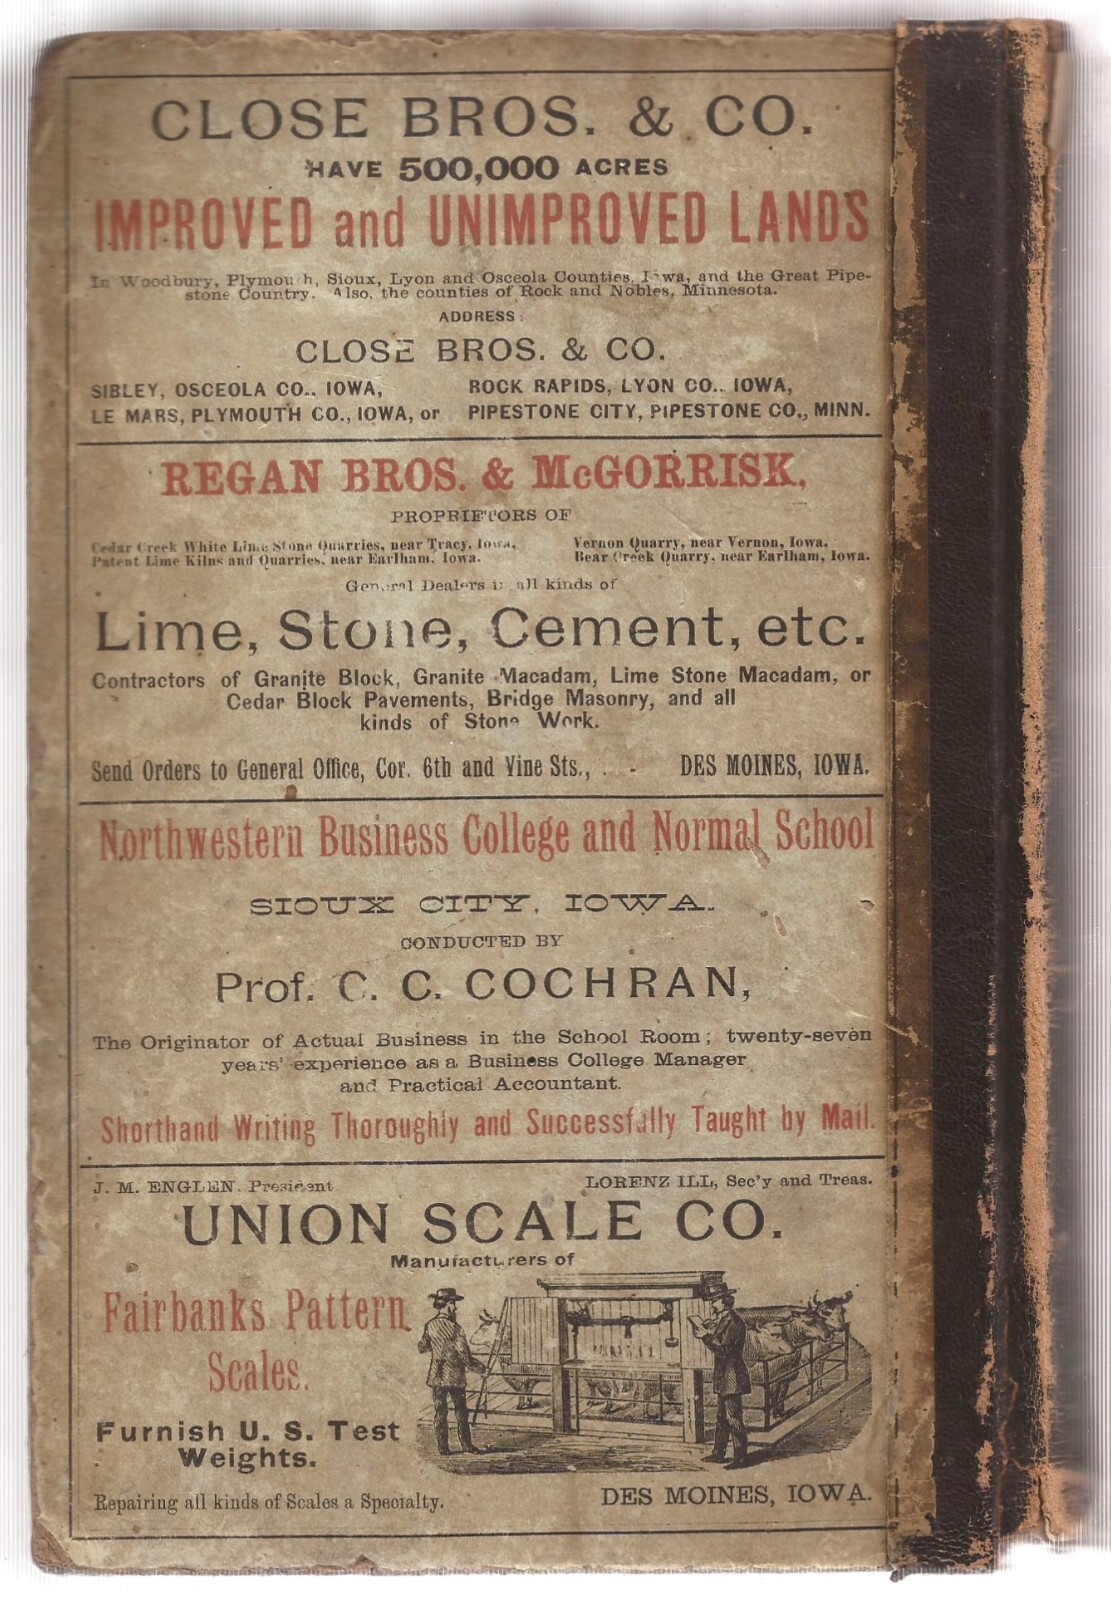 CLOSE BROS. & CO.
HAVE 500,000 ACRES
IMPROVED and UNIMPROVED LANDS
In Woodbury, Plymouth, Sioux, Lyon and Osceola Counties, Iowa, and the Great Pipe-
stone Country. Also, the counties of Rock and Nobles, Minnesota.
ADDRESS:
CLOSE BROS. & CO.
SIBLEY, OSCEOLA CO., IOWA, ROCK RAPIDS, LYON CO., IOWA,
LE MARS, PLYMOUTH CO., IOWA, or PIPESTONE CITY, PIPESTONE CO., MINN.
REGAN BROS. & McGORRISK,
PROPRIETORS OF
Cedar Creek White Lime Stone Quarries, near Tracy, Iowa, Vernon Quarry, near Vernon, Iowa.
Patent Lime Kilns and Quarries, near Earlham, Iowa. Bear Creek Quarry, near Earlham, Iowa.
General Dealers in all kinds of
Lime, Stone, Cement, etc.
Contractors of Granite Block, Granite Macadam, Lime Stone Macadam, or
Cedar Block Pavements, Bridge Masonry, and all
kinds of Stone Work.
Send Orders to General Office, Cor. 6th and Vine Sts., . - DES MOINES, IOWA.
Northwestern Business College and Normal School
SIOUX CITY, IOWA.
CONDUCTED BY
Prof. C. C. COCHRAN,
The Originator of Actual Business in the School Room; twenty-seven
years' experience as a Business College Manager
and Practical Accountant.
Shorthand Writing Thoroughly and Successfully Taught by Mail.
J. M. ENGLEN, President LORENZ ILL, Sec'y and Treas.
UNION SCALE CO.
Manufacturers of
Fairbanks Pattern
Scales.
Furnish U. S. Test
Weights.
Repairing all kinds of Scales a Specialty. DES MOINES, IOWA.